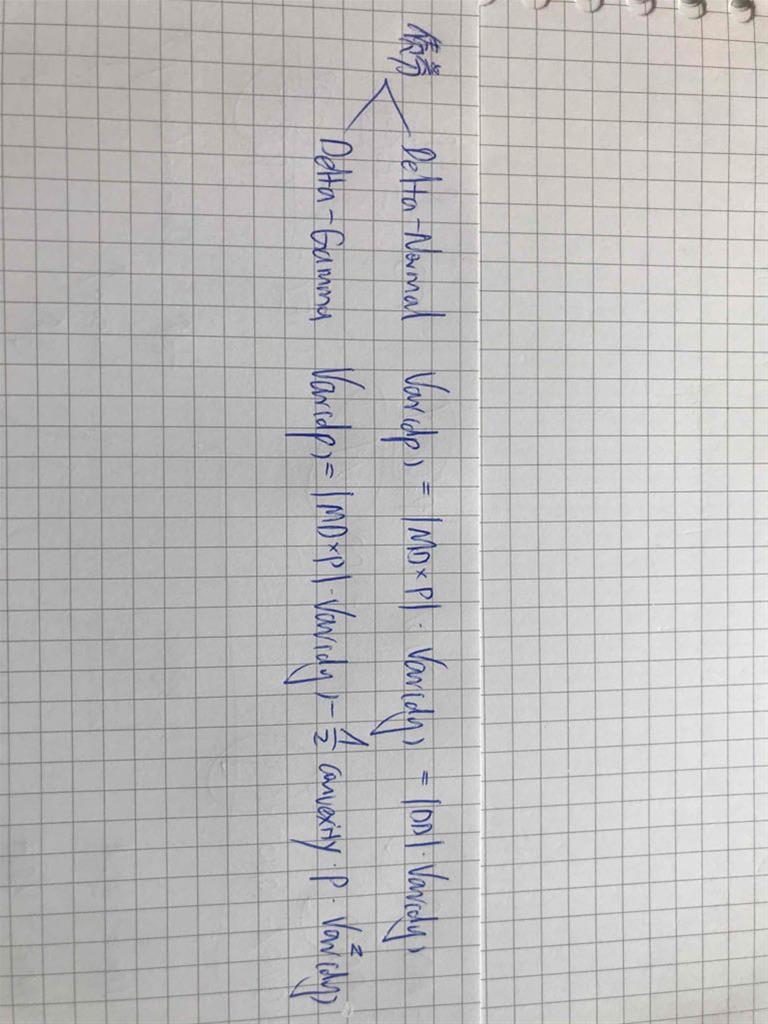 债券
Delta-Normal Var(dp) = |MD×P| · Var(dy) = |DD| · Var(dy)
Delta-Gamma Var(dp) = |MD×P| · Var(dy) - 1/2 convexity · P · Var²(dy)